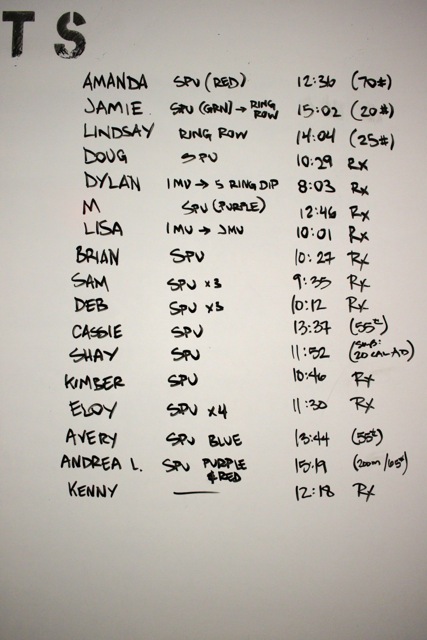 TS
AMANDA SPU (RED) 12:36 (70#)
JAMIE SPU (GRN) → RING ROW 15:02 (20#)
LINDSAY RING ROW 14:04 (25#)
DOUG SPU 10:29 Rx
DYLAN 1 MU → 5 RING DIP 8:03 Rx
M SPU (PURPLE) 12:46 Rx
LISA 1 MU → JMU 10:01 Rx
BRIAN SPU 10:27 Rx
SAM SPU x3 9:35 Rx
DEB SPU x3 10:12 Rx
CASSIE SPU 13:37 (55#)
SHAY SPU 11:52 (SUB: 20 CAL AD)
KIMBER SPU 10:46 Rx
ELOY SPU x4 11:30 Rx
AVERY SPU BLUE 13:44 (55#)
ANDREA L. SPU PURPLE & RED 15:19 (200m/65#)
KENNY — 12:18 Rx